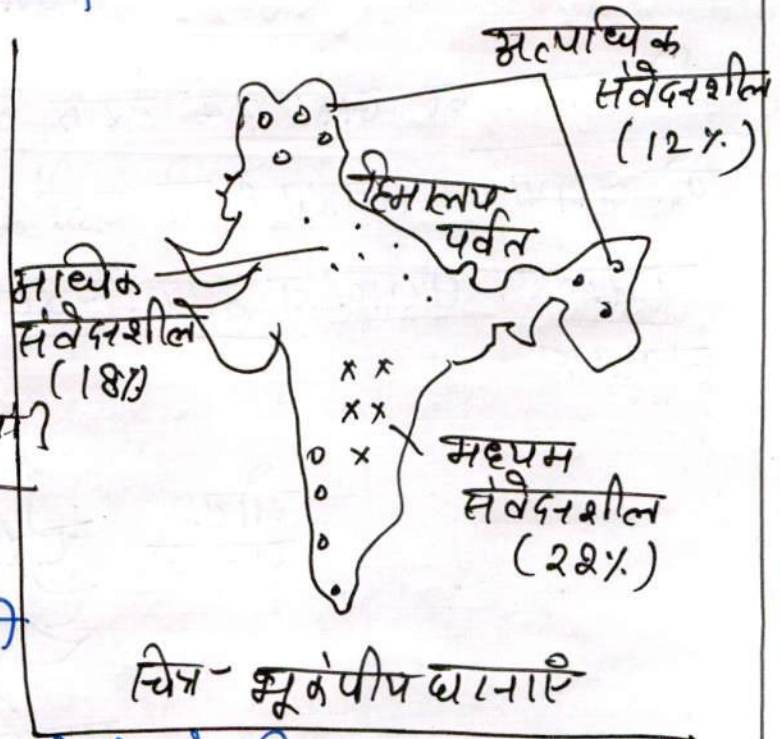 अत्याधिक
संवेदनशील
(12%)
हिमालय
पर्वत
अधिक
संवेदनशील
(18%)
मध्यम
संवेदनशील
(22%)
चित्र- भूकंपीय घटनाएँ